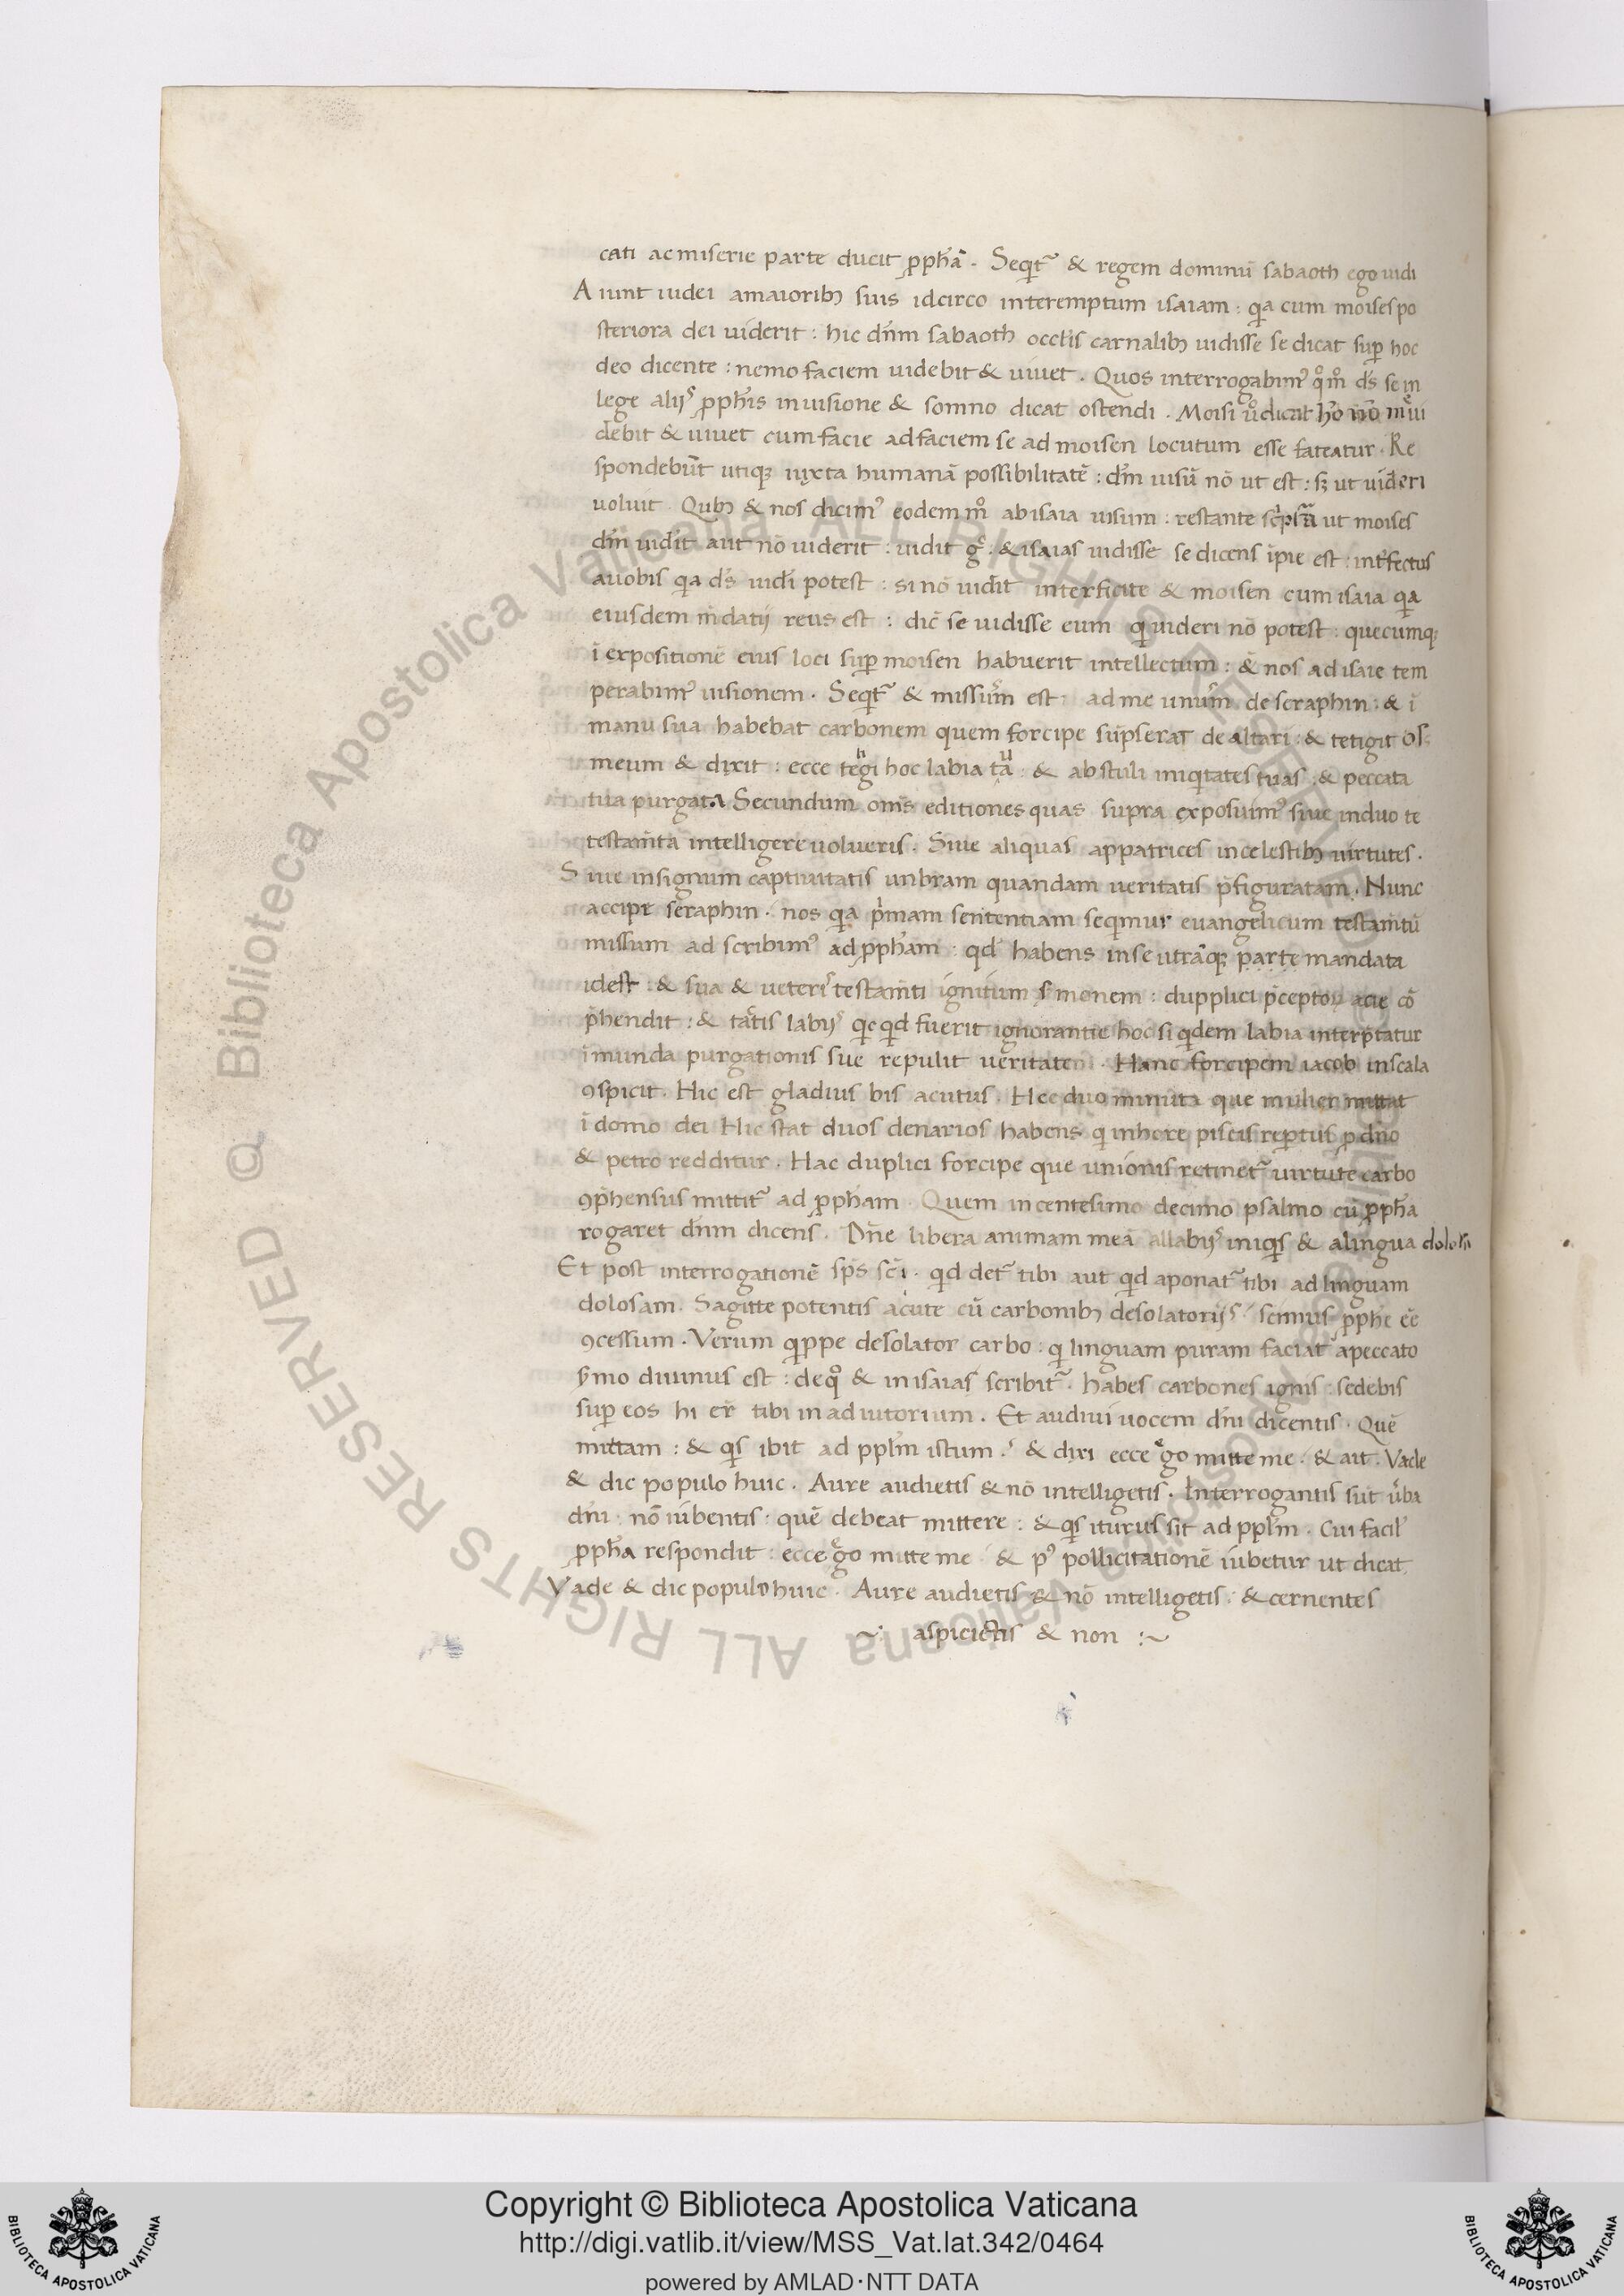 cati ac miserie parte ducit ꝓph̄ā. Seqͥt̄ & regem dominū sabaoth ego uidi
Aiunt iudei amaioribꝫ suis idcirco interemptum isaiam: qͥa cum moises po
steriora dei uiderit: hic dn̄m sabaoth occl̄is carnalibꝫ uidisse se dicat sup̄ hoc
deo dicente: nemo faciem uidebit & uiuet. Quos interrogabimꝰ qͦmͦ ds̄ se in
lege alijs ꝓph̄is inuisione & somno dicat ostendi. Moisi uͦ dicat hͦo nō
debit & uiuet cum facie adfaciem se ad moisen locutum esse fateatur. Re
spondebūt utiqꝫ iuxta humanā possibilitatē: dm̄ uisū nō ut est: sꝫ ut uideri
uoluit. Qubꝫ & nos dicimꝰ eodem mͦ abisaia uisum: restante ut moises
dm̄ uidit aut nō uiderit: uidit gͦ: & isaias uidisse se dicens ipie est: int̄fectus
auobis qͥa ds̄ uid̄i potest: si nō uidit interficite & moisen cum isaia qͥa
eiusdem m̄datij reus est: dic̄ se uidisse eum qͥ uideri nō potest: quecumqꝫ
ī expositionē eius loci sup̄ moisen habuerit intellectum: & nos ad isaie tem
perabimꝰ uisionem. Seqͥt̄ & missum est ad me unum de seraphin: & ī
manu sua habebat carbonem quem forcipe sūpserat de altari: & tetigit os
meum & dixit: ecce tegi hoc labia tā: & abstuli iniqͥtates tuas: & peccata
tua purgata Secundum om̄s editiones quas supra exposuimꝰ siue induo te
testam̄ta intelligere uolueris. Siue aliquas appatrices incelestibꝫ uirtutes.
Siue insignum captiuitatis unbram quandam ueritatis p̄figuratam. Nunc
accipe seraphin. nos qͥa pͥmam sententiam seqͥmur euangelicum testam̄tū
missum ad scribimꝰ ad ꝓph̄am: qd̄ habens in se utrāqꝫ parte mandata
idest: & sua & ueterͥ testam̄ti ignitum s̄monem: dupplici p̄ceptoꝝ acie cō
p̄hendit: & tac̄tis labijs qͥcqͥd fuerit ignorantie hoc si qͥdem labia interp̄tatur
īmunda purgationis sue repulit ueritatem. Hanc forcipem iacob inscala
ꝯspicit. Hic est gladius bis acutus. Hec duo minuta que mulier mittat
ī domo dei Hic stat duos denarios habens qͥ inhore piscis rep̄tus ꝓ dn̄o
& petro redditur. Hac duplici forcipe que unionis retinet̄ uirtute carbo
ꝯp̄hensus mittit̄ ad ꝓph̄am. Quem incentesimo decimo psalmo cū ꝓph̄a
rogaret dn̄m dicens. Dn̄e libera animam meā allabijs iniqͥs & alingua dolosa
Et post interrogationē sp̄s sc̄i. qͥd det̄ tibi aut qͥd aponat̄ tibi ad linguam
dolosam. Sagitte potentis acute cū carbonibꝫ desolatorijs. scimus ꝓph̄e eē
ꝯcessum. Verum qͥppe desolator carbo: qͥ linguam puram faciat apeccato
s̄mo diuinus est: deqͦ & inisaias scribit̄. habes carbones ignis: sedebis
sup̄ eos hi er̄ tibi in adiutorium. Et audiui uocem dn̄i dicentis. Quē
mittam: & qͥs ibit ad ppl̄m istum. & dixi ecce ego mitte me. & ait. Vade
& dic populo huic. Aure audietis & nō intelligetis. Interrogantis sūt ūba
dn̄i. nō iubentis. quē debeat mittere: & qͥs iturus sit ad ppl̄m. Cui facil̄
ꝓph̄a respondit: ecce ego mitte me. & pꝰ pollicitationē iubetur ut dicat
Vade & dic populo huic. Aure audietis & nō intelligetis: & cernentes
~: aspicietis & non :~
Copyright © Biblioteca Apostolica Vaticana
http://digi.vatlib.it/view/MSS_Vat.lat.342/0464
powered by AMLAD·NTT DATA
BIBLIOTECA APOSTOLICA VATICANA
BIBLIOTECA APOSTOLICA VATICANA
© Biblioteca Apostolica Vaticana ALL RIGHTS RESERVED
© Biblioteca Apostolica Vaticana ALL RIGHTS RESERVED